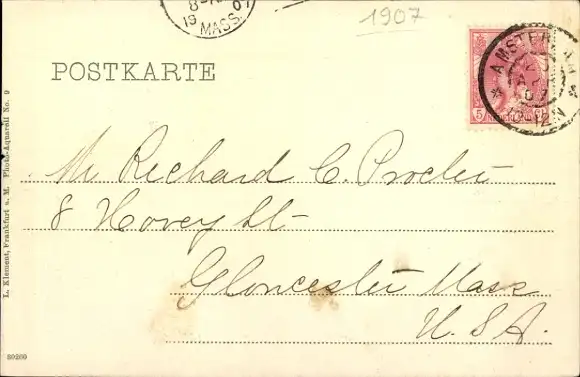 1907
8-
19 07
MASS.
POSTKARTE
AMSTERDAM
10-12N
5 5
NEDERLAND
Mr Richard C. Procter
8 Hovey St-
Gloucester Mass
U.S.A.
L. Klement, Frankfurt a. M. Photo-Aquarell No. 9
30260